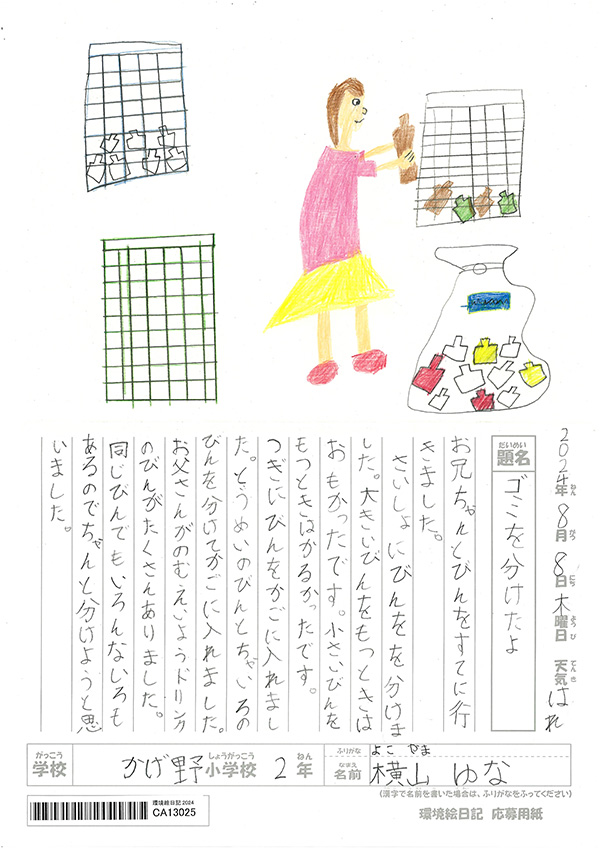 2024年ねん 8月がつ 8日にち 木曜日ようび 天気てんき はれ
題名だいめい ゴミを分けたよ
お兄ちゃんとびんをすてに行
きました。
さいしょにびんをを分けま
した。大きいびんをもつときは
おもかったです。小さいびんを
もつときはかるかったです。
つぎにびんをかごに入れまし
た。とうめいのびんとちゃいろの
びんを分けてかごに入れました。
お父さんがのむえいようドリンク
のびんがたくさんありました。
同じびんでもいろんないろも
あるのでちゃんと分けようと思
いました。
学校がっこう かげ野小学校しょうがっこう 2年ねん
ふりがな よこ やま
名前なまえ 横山 ゆな
(漢字で名前を書いた場合は、ふりがなをふってください)
環境絵日記2024
CA13025
環境絵日記 応募用紙